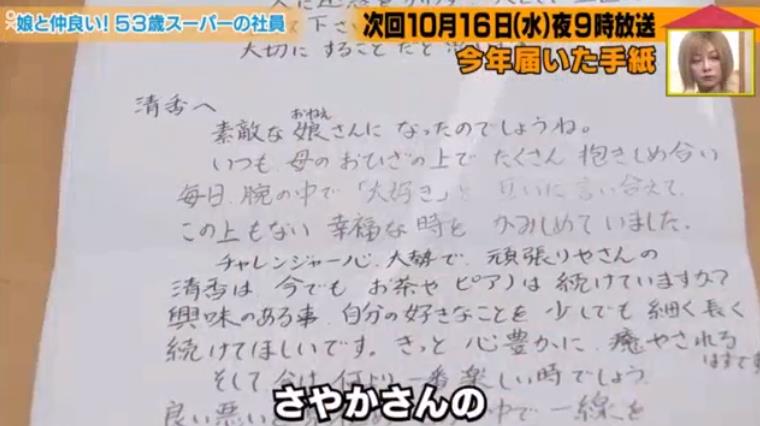 娘と仲良い!53歳スーパーの社員
次回10月16日(水)夜9時放送
今年届いた手紙
大切にすること
清香へ
おねえ
素敵な娘さんになったのでしょうね。
いつも母のおひざの上でたくさん抱きしめ合い
毎日、腕の中で「大好き」と互いに言い合えて、
この上もない幸福な時をかみしめていました。
チャレンジャー心、大勢で、頑張りやさんの
清香は今でもお茶やピアノは続けていますか?
興味のある事、自分の好きなことを少しでも細く長く
続けてほしいです。きっと心豊かに癒やされる
はずです
そして今は何より一番楽しい時でしょう
良い悪い
中で一線を
さやかさんの